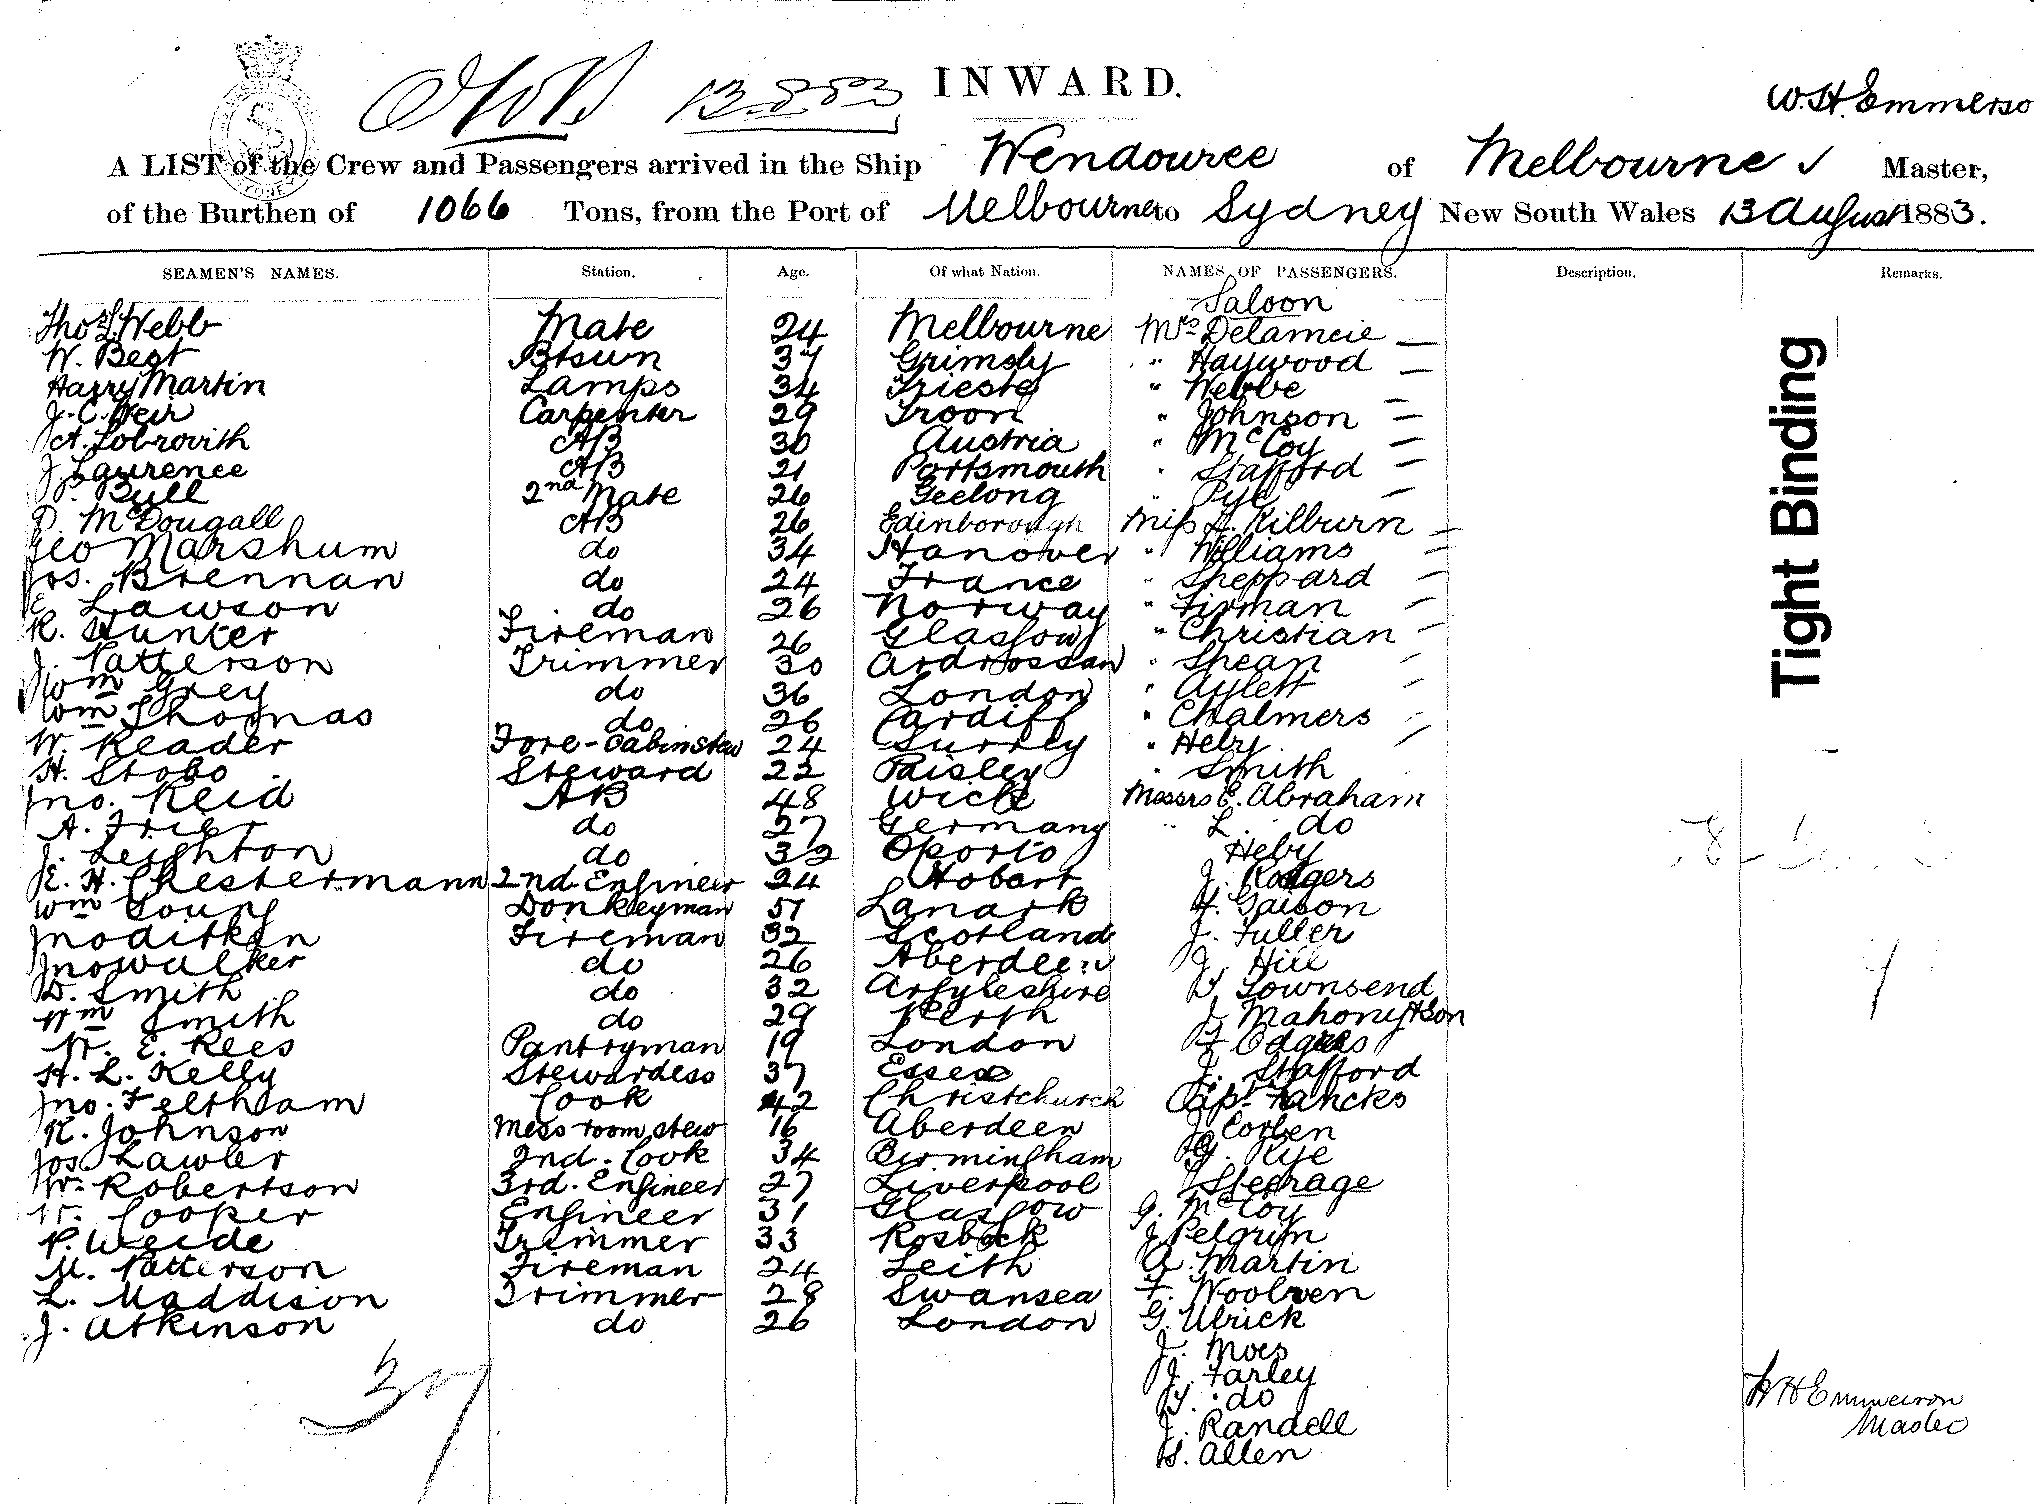 13.8.83
INWARD.
W.H. Emmerso
A LIST of the Crew and Passengers arrived in the Ship Wendouree of Melbourne ✓ Master,
of the Burthen of 1066 Tons, from the Port of Melbourne to Sydney New South Wales 13 August 1883.
SEAMEN'S NAMES. Station. Age. Of what Nation. NAMES OF PASSENGERS. Description. Remarks.
Saloon
Thos L. Webb Mate 24 Melbourne Mrs Delameie —
W. Best Btsun 37 Grimsby " Haywood —
Harry Martin Lamps 34 Trieste " Webbe —
J. C. Weir Carpenter 29 Troon " Johnson —
A. Lobrovith AB 30 Austria " McCoy —
J Laurence AB 21 Portsmouth " Stafford —
Bull 2nd Mate 26 Geelong " Pye —
D. McDougall AB 26 Edinborough Miss A. Kilburn —
Geo Marshum do 34 Hanover " Williams —
Jos. Brennan do 24 France " Sheppard —
E. Lawson do 26 Norway " Firman —
R. Hunter Fireman 26 Glasgow " Christian —
J. Patterson Trimmer 30 Ardrossan " Shean —
Wm Grey do 36 London " Aylett —
Wm Thomas do 26 Cardiff " Chalmers —
W. Reader Fore-Cabin stew 24 Surrey " Heby —
H. Stobo Steward 22 Paisley " Smith
Jno. Reid AB 48 Wick Messrs E. Abraham
A. Frier do 27 Germany " L. do
J. Leighton do 32 Oporto Heby
E. H. Chestermann 2nd Engineer 24 Hobart J. Rodgers
Wm Young Donkeyman 51 Lanark H. Gaison
Jno Aitken Fireman 32 Scotland J. Fuller
Jno Walker do 26 Aberdeen J. Hill
D. Smith do 32 Argyleshire Townsend
Wm Smith do 29 Perth J. Mahony & Son
W. E. Rees Pantryman 19 London
H. L. Kelly Stewardess 37 Essex J. Stafford
Jno. Feltham Cook 42 Christchurch Capt
R. Johnson Mess room stew 16 Aberdeen J Corben
Jos Lawler 2nd. Cook 34 Birmingham G. Rye
Wm Robertson 3rd. Engineer 27 Liverpool Steerage
W. Cooper Engineer 31 Glasgow G. McCoy
P. Weide Trimmer 33 Rostock J Pelgrim
M. Patterson Fireman 24 Leith A. Martin
L. Maddison Trimmer 28 Swansea F. Woolven
J. Atkinson do 26 London G. Ulrick
J. Moes
J. Farley
Y. : do
J. Randell
H. Allen
37
W H Emmerson
Master
Tight Binding